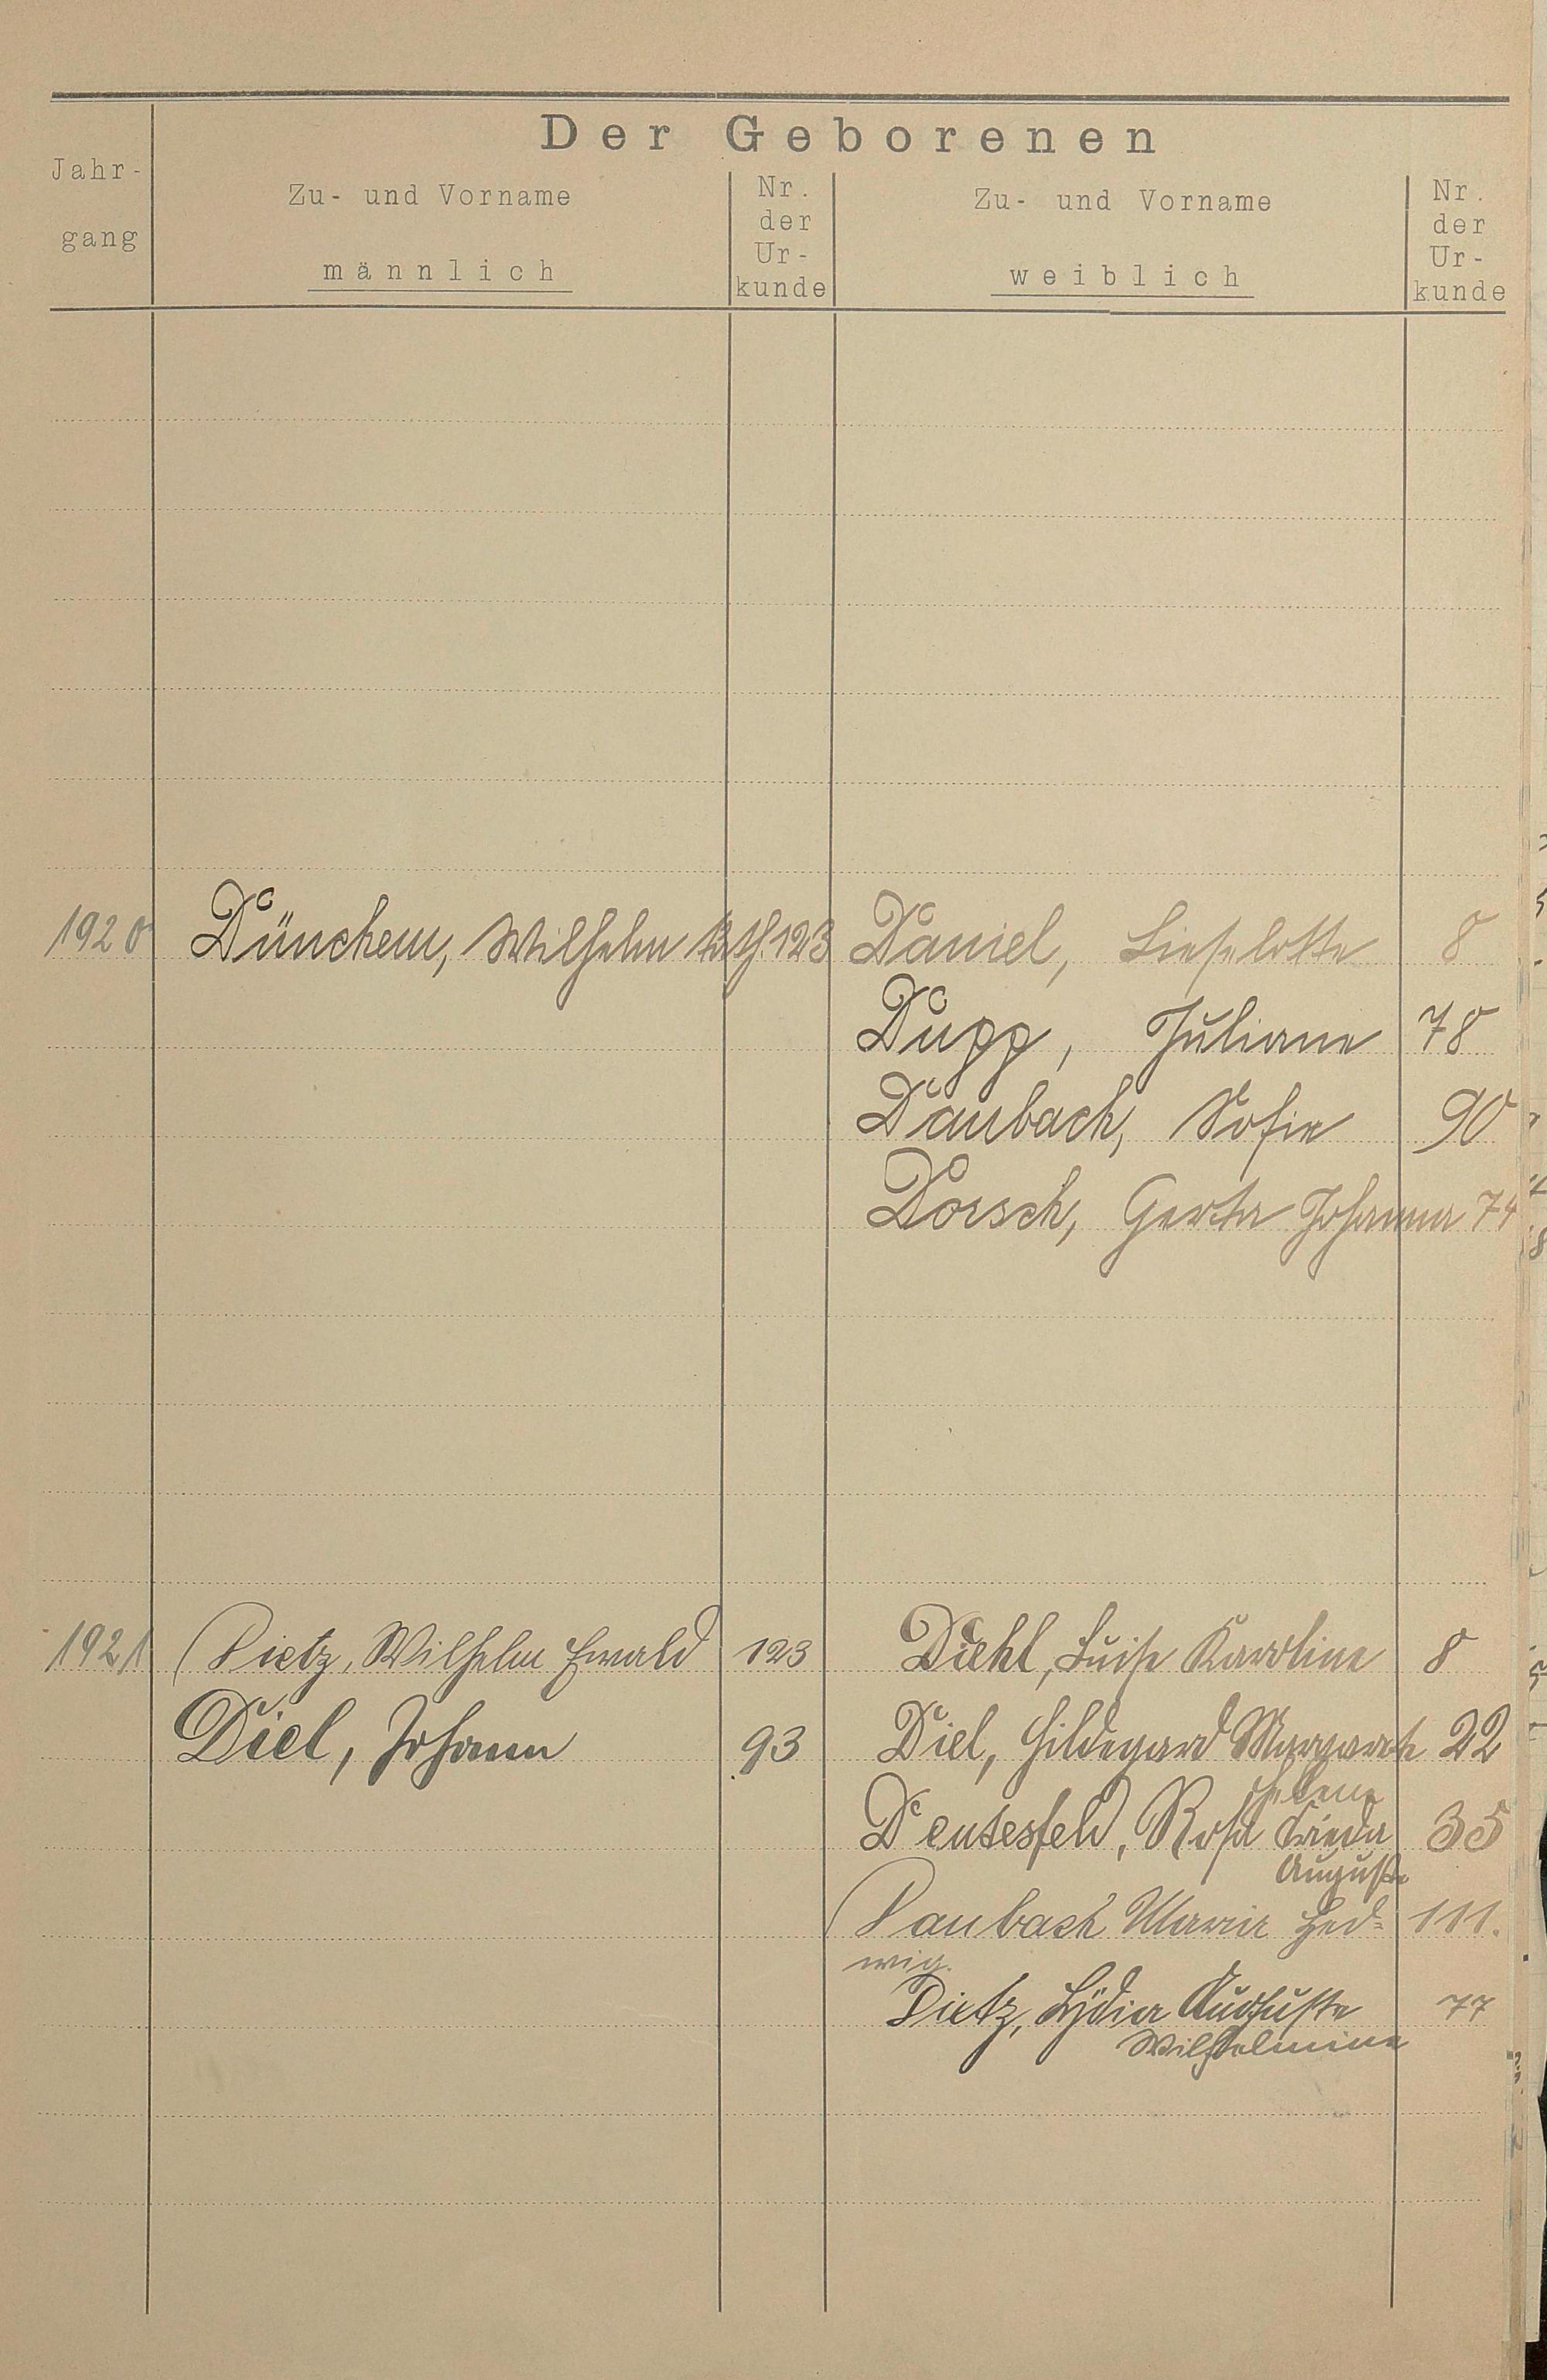 Der Geborenen
Jahr-
gang
Zu- und Vorname
männlich
Nr.
der
Ur-
kunde
Zu- und Vorname
weiblich
Nr.
der
Ur-
kunde
1920 Dünchem, Wilhelm 123 Daniel, Lieselotte 8
Dupp, Juliane 78
Daubach, Sofie 90
Dorsch, Gerta Johanna 74
1921 Dietz, Wilhelm Ewald 123 Diehl, Luise Karoline 8
Diel, Johann 93 Diel, Hildegard Margarete 22
Helene
Deutesfeld, Rosa Frieda 35
Auguste
Daubach Maria Hed= 111.
wig.
Dietz, Lydia Auguste 77
Wilhelmine